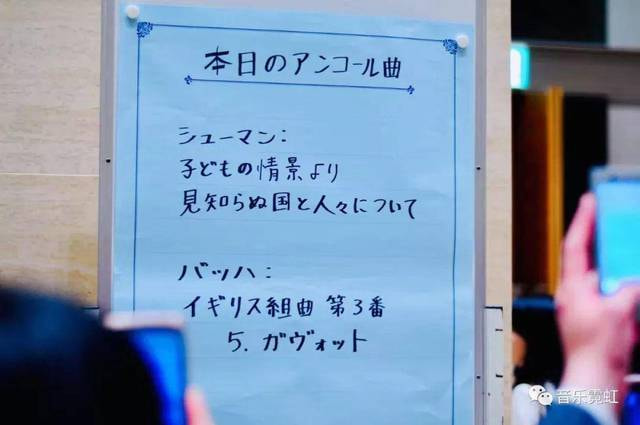 本日のアンコール曲
シューマン:
子どもの情景より
見知らぬ国と人々について
バッハ:
イギリス組曲 第3番
5. ガヴォット
音乐霓虹